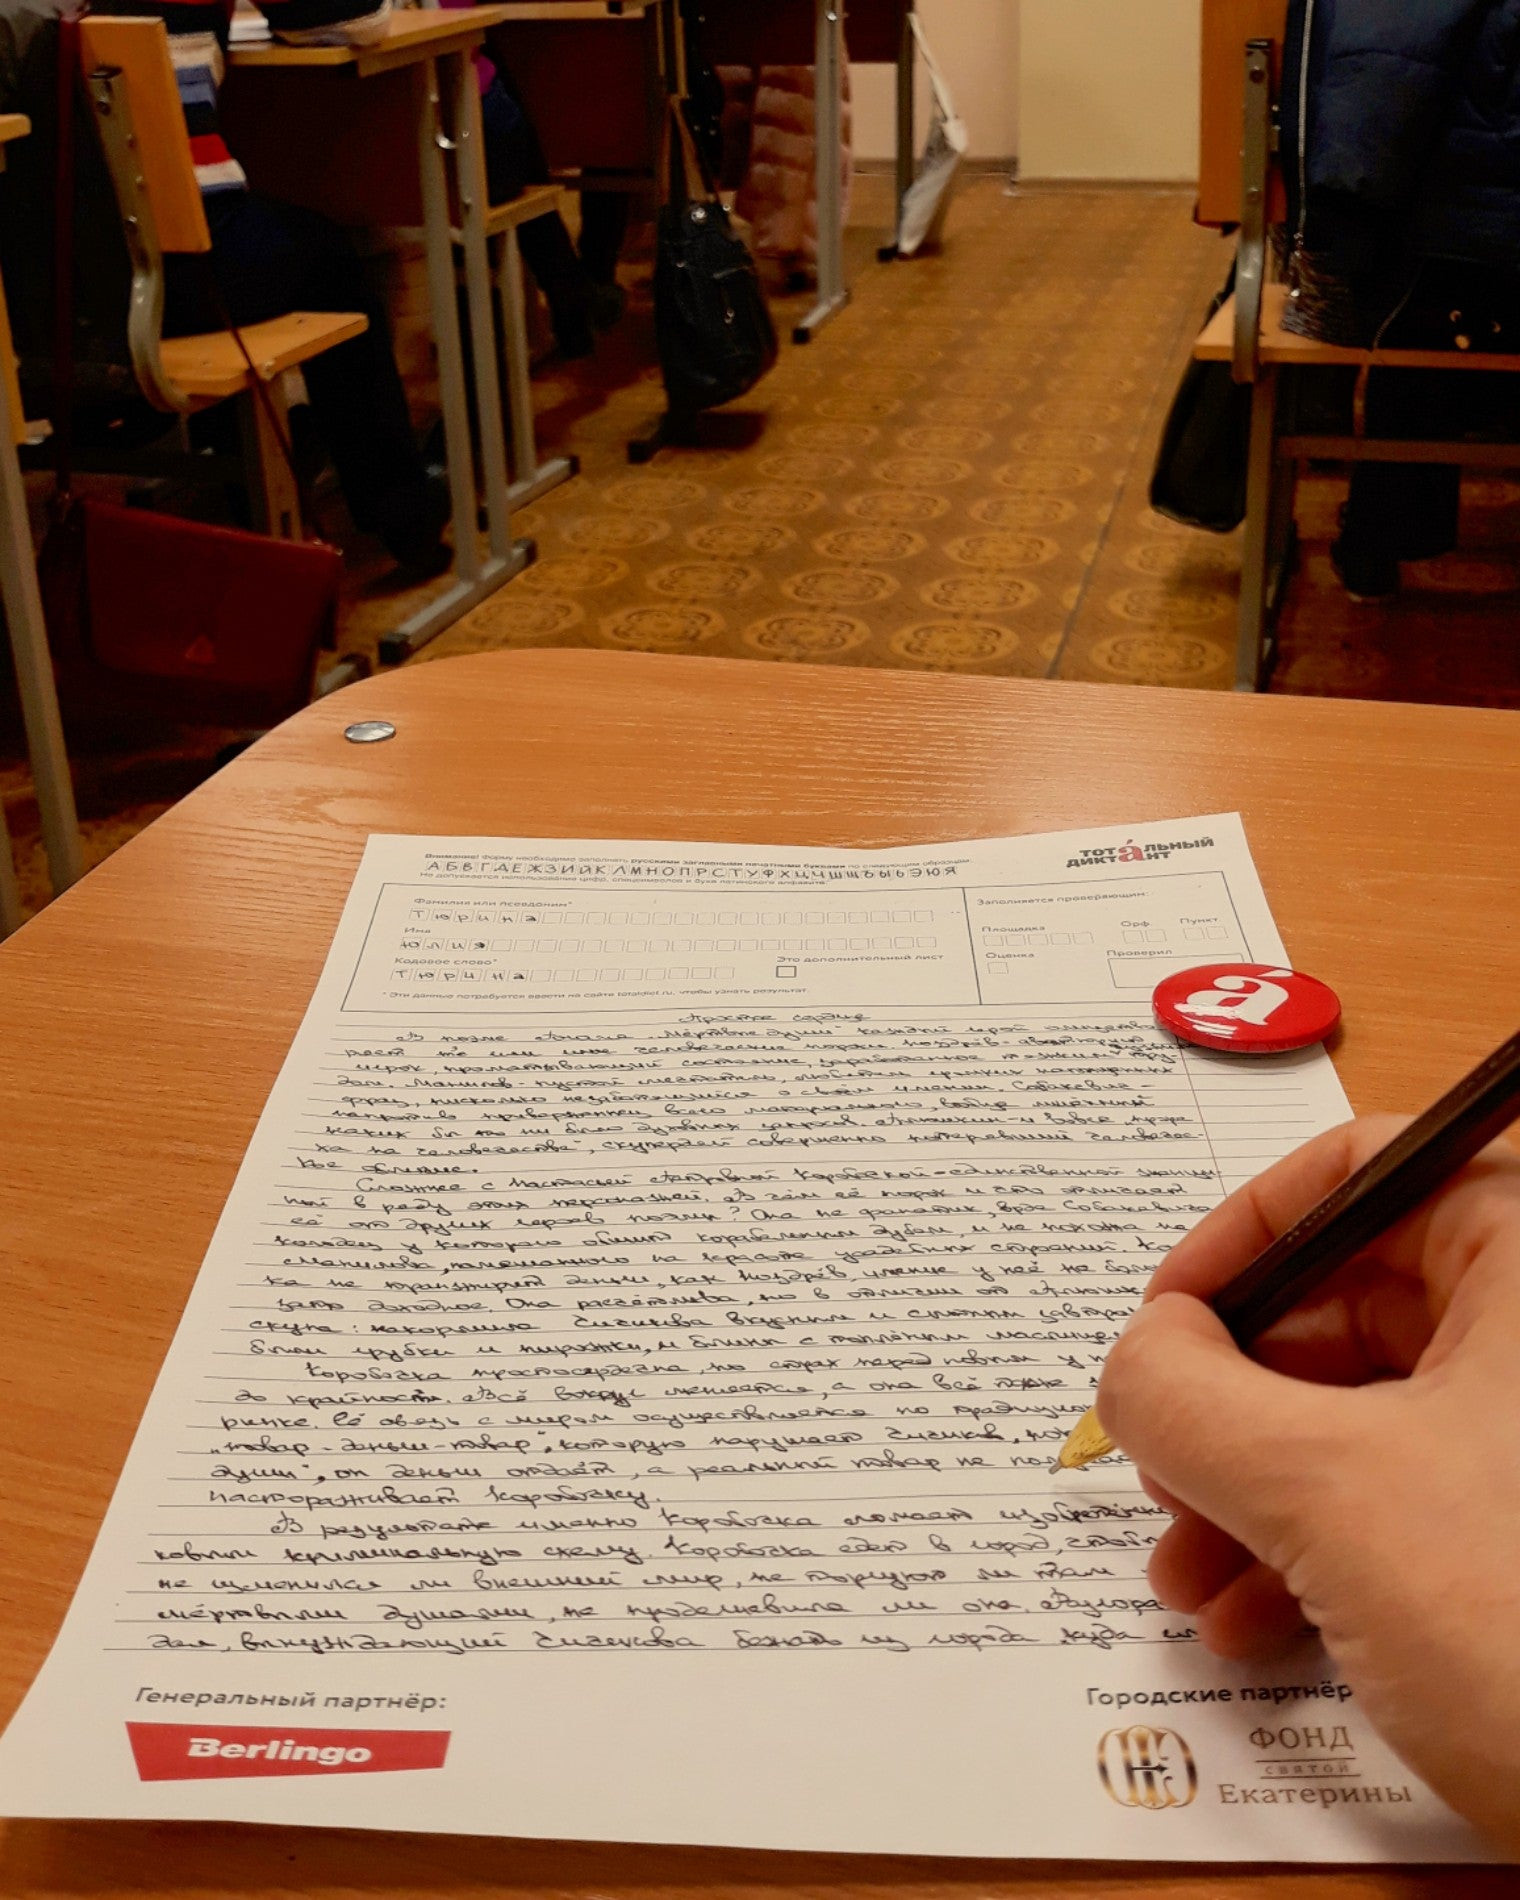 Внимание! Форму необходимо заполнять русскими заглавными печатными буквами по следующим образцам:
АБВГДЕЖЗИЙКЛМНОПРСТУФХЦЧШЩЪЫЬЭЮЯ
Не допускается использование цифр, спецсимволов и букв латинского алфавита.
тотáльный
диктант
Фамилия или псевдоним*
Тюрина
Имя
Юлия
Кодовое слово*
Тюрина
Это дополнительный лист
* Эти данные потребуется ввести на сайте totaldict.ru, чтобы узнать результат.
Заполняется проверяющим:
Площадка
Орф.
Пункт.
Оценка
Проверил
á
Простое сердце
В поэме Гоголя „Мёртвые души" каждый герой олицетво-
ряет те или иные человеческие пороки. Ноздрёв - азартный
игрок, проматывающий состояние, заработанное тяжким тру-
дом. Манилов - пустой мечтатель, любитель громких
фраз, нисколько не заботящийся о своём имении. Собакевич -
напротив приверженец всего материального, вовсе лишённый
каких бы то ни было духовных запросов. Плюшкин - и вовсе „проре-
ха на человечестве", скупердяй совершенно потерявший человечес-
кое обличие.
Сложнее с Настасьей Петровной Коробочкой - единственной женщи-
ной в ряду этих персонажей. В чём её порок и что отличает
её от других героев поэмы? Она не фанатик, вроде Собакевича
колодец у которого обшит корабельным дубом, и не похожа на
Манилова, помешанного на красоте усадебных строений.
ка не транжирит деньги, как Ноздрёв, имение у неё не
зато доходное. Она расчётлива, но в отличии от
скупа: накормила Чичикова вкусным и сытным
были грибки и пирожки, и блины с топлёным
Коробочка простосердечна, но страх перед новым у
до крайности. Всё вокруг меняется, а она всё
рынке. Её связь с миром осуществляется по
„товар - деньги - товар", которую нарушает Чичиков,
души", он деньги отдаёт, а реальный товар не
настораживает Коробочку.
В результате именно Коробочка ломает
ковым криминальную схему. Коробочка едет в город,
не изменился ли внешний мир, не торгуют ли там
мёртвыми душами, не продешевила ли она.
дал, вынуждающий Чичикова бежать из города куда
Генеральный партнёр:
Berlingo
Городские партнёр
ФОНД
СВЯТОЙ
Екатерины